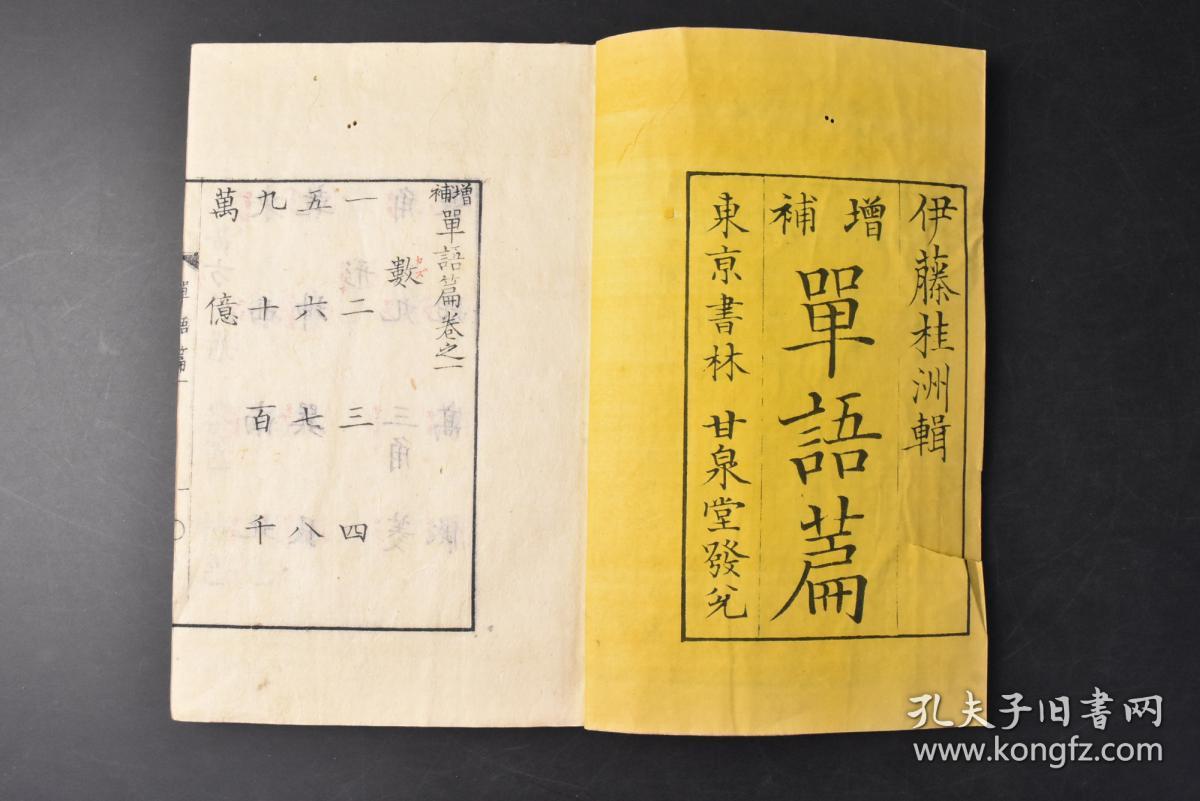 伊藤桂洲輯
增補
單語篇
東京書林 甘泉堂發兌
增補單語篇卷之一
數
カズ
一 二 三 四
五 六 七 八
九 十 百 千
萬 億
單語篇 一
孔夫子旧書网
www.kongfz.com